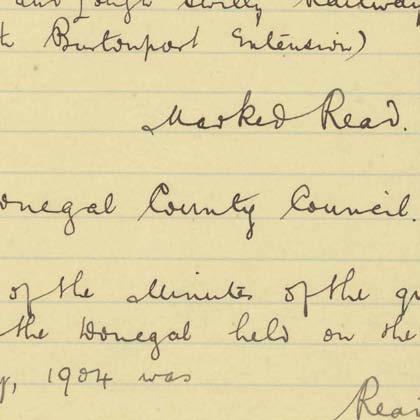 and Lough Swilly Railway
Burtonport Extension)
Marked Read.
onegal County Council.
of the Minutes of the
the Donegal held on the
1904 was
Read